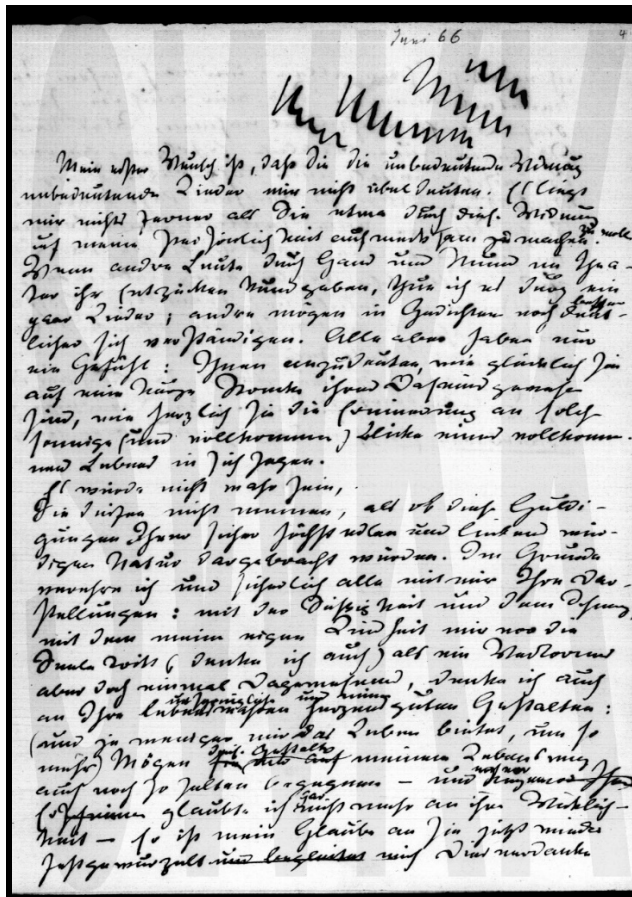 Juni 66
4
Mein erster Wunsch ist, daß Sie die unbedeutende Widmung
unbedeutender Lieder mir nicht übel deuten. Es liegt
mir nichts ferner als Sie etwa durch diese Widmung
auf meine Persönlichkeit aufmerksam zu machen.
Wenn andre Leute durch Hand und Mund im Thea-
ter ihr Entzücken kundgeben, thue ich es durch ein
paar Lieder; andre mögen in Gedichten noch
licher sich verständigen. Alle aber haben nur
ein Gefühl: Ihnen anzudeuten, wie glücklich sie
auf eine kurze Strecke ihres Daseins gewesen
sind, wie herzlich sie die Erinnerung an solch
sonnige (und vollkommen) Blicke eines vollkomme-
nen Lebens in sich hegen.
Es würde nicht wahr sein,
Sie dürfen nicht meinen, als ob diese Huldi-
gungen Ihrer sicher höchst edlen und liebenswür-
digen Natur dargebracht würden. Im Grunde
verehre ich und sicherlich alle mit mir Ihre Dar-
stellungen: mit der Süßigkeit und dem Schmerz,
mit dem meine eigne Kindheit mir vor die
Seele tritt (denke ich auch) als ein Verlornes
aber doch einmal Dagewesenes, denke ich auch
an Ihre und immer herzensguten Gestalten:
(und je weniger mir das Leben bietet, um so
mehr) Mögen diese Gestalten auf meinem Lebensweg
auch noch so selten begegnen — und
glaubte ich gar nicht mehr an ihre Wirklich-
keit — so ist mein Glaube an sie jetzt wieder
festgewurzelt und begleitet mich Dies verdanke